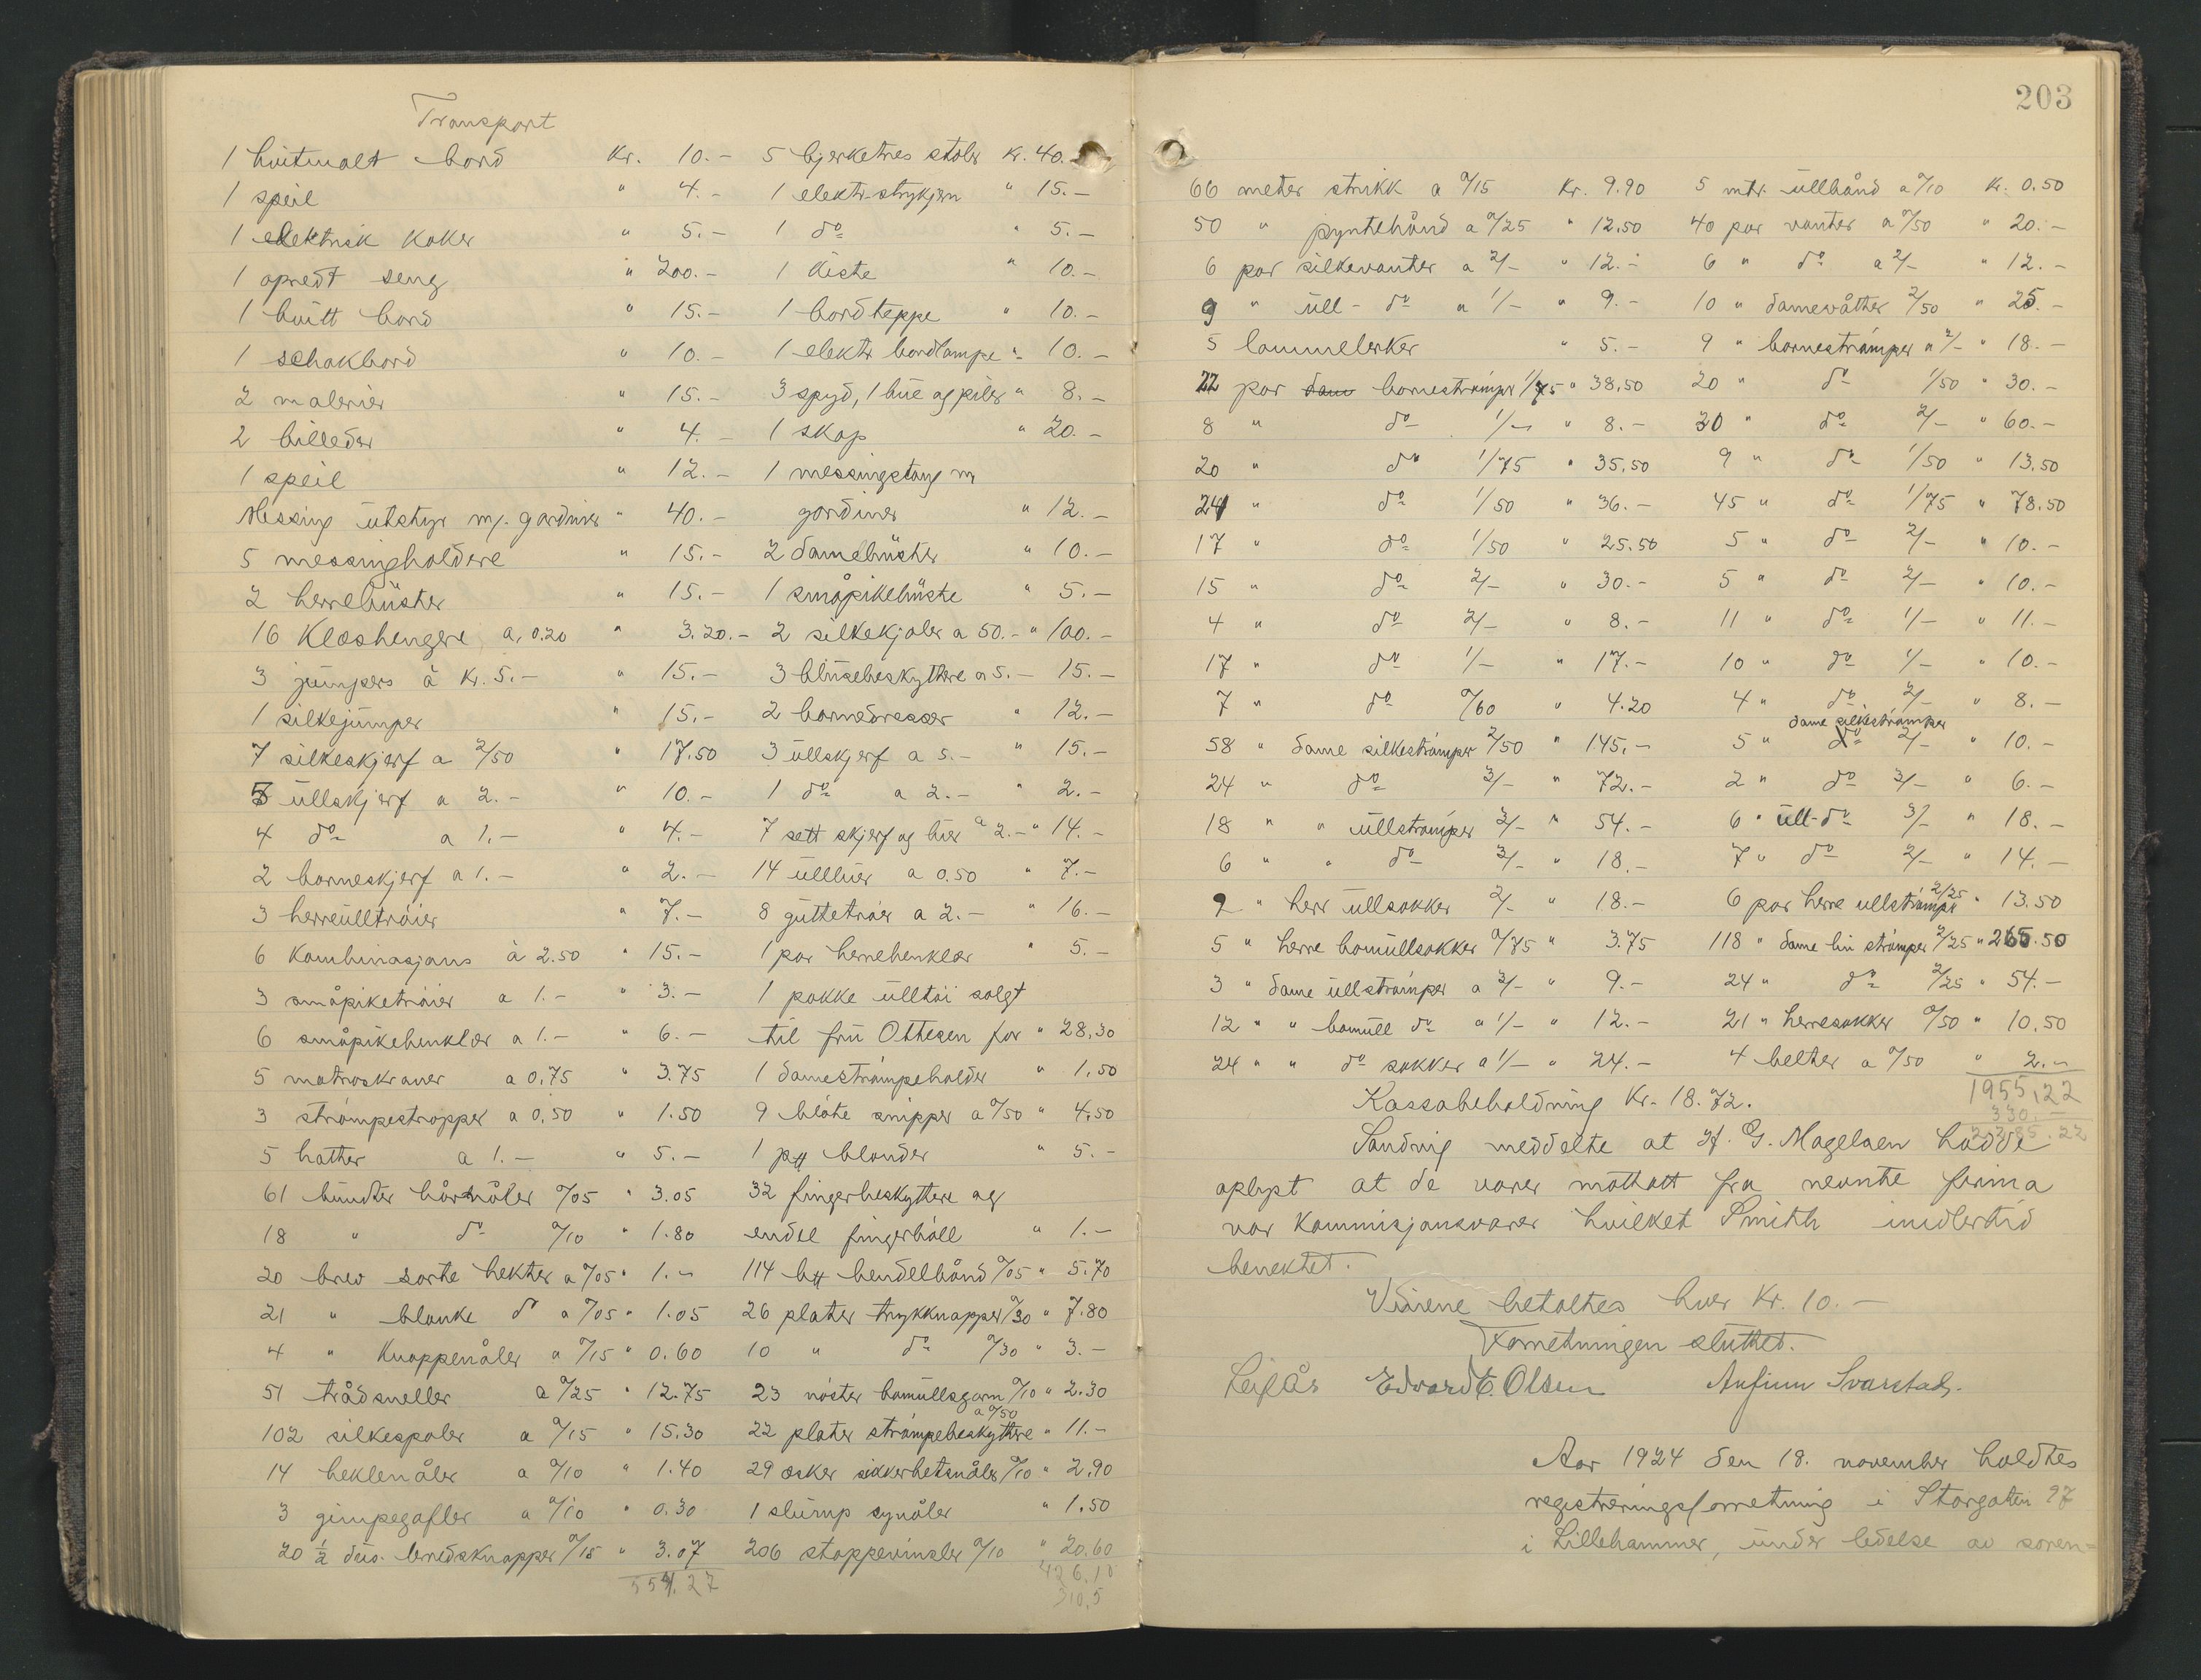 Transport
1 hvitmalt bord Kr. 10.- 5 bjerketres stoler Kr. 40.-
1 speil " 4.- 1 elektr. strykjern " 15.-
1 elektrisk koker " 5.- 1 do " 5.-
1 opredt seng " 200.- 1 kiste " 10.-
1 hvitt bord " 15.- 1 bordteppe " 10.-
1 schakbord " 10.- 1 elektr bordlampe " 10.-
2 malerier " 15.- 3 spyd, 1 bue og piler " 8.-
2 billeder " 4.- 1 skap " 20.-
1 speil " 12.- 1 messingstang m
Messing utstyr m/. gardiner " 40.- gardiner " 12.-
5 messingholdere " 15.- 2 damebuster " 10.-
2 herrebuster " 15.- 1 småpikebuste " 5.-
16 Kleshengere a. 0.20 " 3.20.- 2 silkekjoler a 50.- " 100.-
3 jumpers à Kr. 5.- " 15.- 3 blusebeskyttere a 5.- 15.-
1 silkejumper " 15.- 2 barnedresser " 12.-
7 silkeskjerf a 2/50 " 17.50 3 ullskjerf a 5.- " 15.-
5 ullskjerf a 2.- " 10.- 1 do a 2.- " 2.-
4 do a 1.- " 4.- 7 sett skjerf og luer a 2.- " 14.-
2 barneskjerf a 1.- " 2.- 14 ullluer a 0.50 " 7.-
3 herreulltrøier " 7.- 8 guttetrøier a 2.- " 16.-
6 Kombinasjons à 2.50 " 15.- 1 par herrebenklær " 5.-
3 småpiketrøier a 1.- " 3.- 1 pakke ulltøi solgt
6 småpikebenklær a 1.- " 6.- til fru Ottesen for " 28,30
5 matroskraver a 0.75 " 3.75 1 damestrømpeholder " 1,50
3 strømpestropper a 0,50 " 1.50 9 bløte snipper a 0/50 " 4,50
5 hatter a 1.- " 5.- 1 pk blonder " 5.-
61 bundter hårnåler 0/05 " 3.05 32 fingerbeskyttere og
18 " do 0/10 " 1.80 endel fingerbøll " 1.-
20 brev sorte hekter a 0/05 " 1.- 114 bt bendelbånd 0/05 " 5.70
21 " blanke do a 0/05 " 1.05 26 plater trykknapper 0/30 " 7.80
4 " Knappenåler a 0/15 " 0.60 10 " do 0/30 " 3.-
51 trådsneller a 0/25 " 12.75 23 nøster bomullsgarn 0/10 " 2.30
102 silkespoler a 0/15 " 15.30 22 plater strømpebeskyttere a 0/50 " 11.-
14 heklenåler a 0/10 " 1.40 29 æsker sikkerhetsnåler 0/10 " 2,90
3 gimpegafler a 0/10 " 0.30 1 slump synåler " 1.50
20 1/2 dus. lerredsknapper 0/15 " 3.07 206 stoppevinsler 0/10 " 20.60
554.27 426.10
310,5
203
66 meter strikk a 0/15 Kr. 9.90 5 mtr. ullbånd a 0/10 Kr. 0.50
50 " pyntebånd a 0/25 " 12.50 40 par vanter a 0/50 " 20.-
6 par silkevanter a 2/- " 12.- 6 " do a 2/- " 12.-
9 " ull- do a 1/- " 9.- 10 " damevåtter 2/50 " 25.-
5 lommelerker " 5.- 9 " barnestrømper a 2/- " 18.-
22 par dame barnestrømper 1/75 " 38,50 20 " do 1/50 " 30.-
8 " do 1/- " 8.- 30 " do 2/- " 60.-
20 " do 1/75 " 35,50 9 " do 1/50 " 13.50
24 " do 1/50 " 36.- 45 " do 1/75 " 78.50
17 " do 1/50 " 25.50 5 " do 2/- " 10.-
15 " do 2/- " 30.- 5 " do 2/- " 10.-
4 " do 2/- " 8.- 11 " do 1/- " 11.-
17 " do 1/- " 17.- 10 " do 1/- " 10.-
7 " do 0/60 " 4.20 4 " do 2/- " 8.-
dame silkestrømper
58 " dame silkestrømper 2/50 " 145.- 5 " do 2/- " 10.-
24 " do 3/- " 72.- 2 " do 3/- " 6.-
18 " " ullstrømper 3/- " 54.- 6 " ull- do 3/- " 18.-
6 " " do 3/- " 18.- 7 " do 2/- " 14.-
9 " herr ullsokker 2/- " 18.- 6 par herre ullstrømper 2/25 " 13.50
5 " herre bomullsokker 0/75 " 3.75 118 " dame lin strømper 2/25 " 265.50
3 " dame ullstrømper a 3/- " 9.- 24 " do 2/25 " 54.-
12 " " bomull do a 1/- " 12.- 21 " herresokker 0/50 " 10,50
24 " " do sokker a 1/- " 24.- 4 belter a 0/50 " 2.-
Kassabeholdning Kr. 18.72. 1955,22
330.-
2285.22
Sandvig meddelte at H. G. Magelsen hadde
oplyst at de varer mottatt fra nevnte firma
var Kommisjonsvarer hvilket Smith imidlertid
benektet.
Vidnene betaltes hver Kr. 10.-
Forretningen sluttet.
Leif Ås Edvard E. Olsen Anfinn Svarstad.
Aar 1924 den 18. november holdtes
registreringsforretning i Storgaten 97
i Lillehammer, under ledelse av soren=